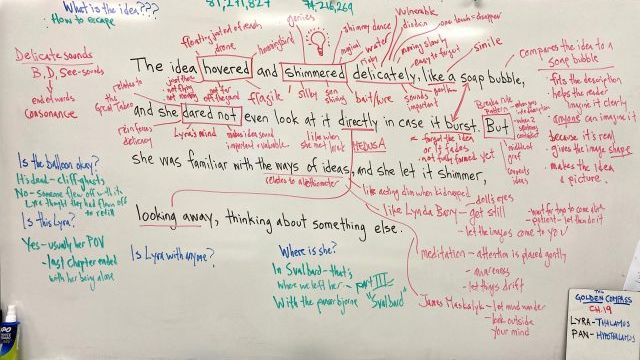 What is the idea???
How to escape
81,271,827
74,216,269
genies
vulnerable
floating just out of reach
drone
hummingbird
shimmy dance
magical
water
disdain
moving slowly
easy to forget
simile
compares the idea to a
soap bubble
Delicate sounds
B, D, See-sounds
end of words
consonance
The idea hovered and shimmered delicately, like a soap bubble,
relates to
the Great Taboo
just there
not flying
not moving
not far
off the ground
fragile
silky
sun
shining
bait/lure
sounds
poetic
important
- fits the description
- helps the reader
imagine it clearly
- anyone can imagine it
because it's real
- gives the image shape
- makes the idea
a picture.
and she dared not even look at it directly in case it burst. But
Breaks rule
reinforces
delicacy
Lyra's mind
makes idea sound
important + valuable.
like when
she met
MEDUSA
= forget the idea
or it fades
= not fully formed yet
connects
ideas
she was familiar with the ways of ideas, and she let it shimmer,
relates to alethiometer
Is the balloon okay?
Hideout - cliff-ghasts
No - someone flew off with it
Lyra thought they had flown off
to
Is this Lyra?
Yes - usually her POV
- last chapter ended
with her being alone
like acting dim when kidnapped
- dolls eyes
like Lynda Barry - get still
- wait for to come along
- patient - let them do it
let the images come to you
looking away, thinking about something else.
meditation - attention is placed gently
- awareness
- let things drift
Is Lyra with anyone?
Where is she?
In Svalbard - that's
where we left her - part III
"Svalbard"
With the panserbjorne
James Maskalyk - let mind wander
- look outside
your mind
THE
GOLDEN COMPASS
CH. 19
LYRA - THALAMUS
PAN - HYPOTHALAMUS
EXPO